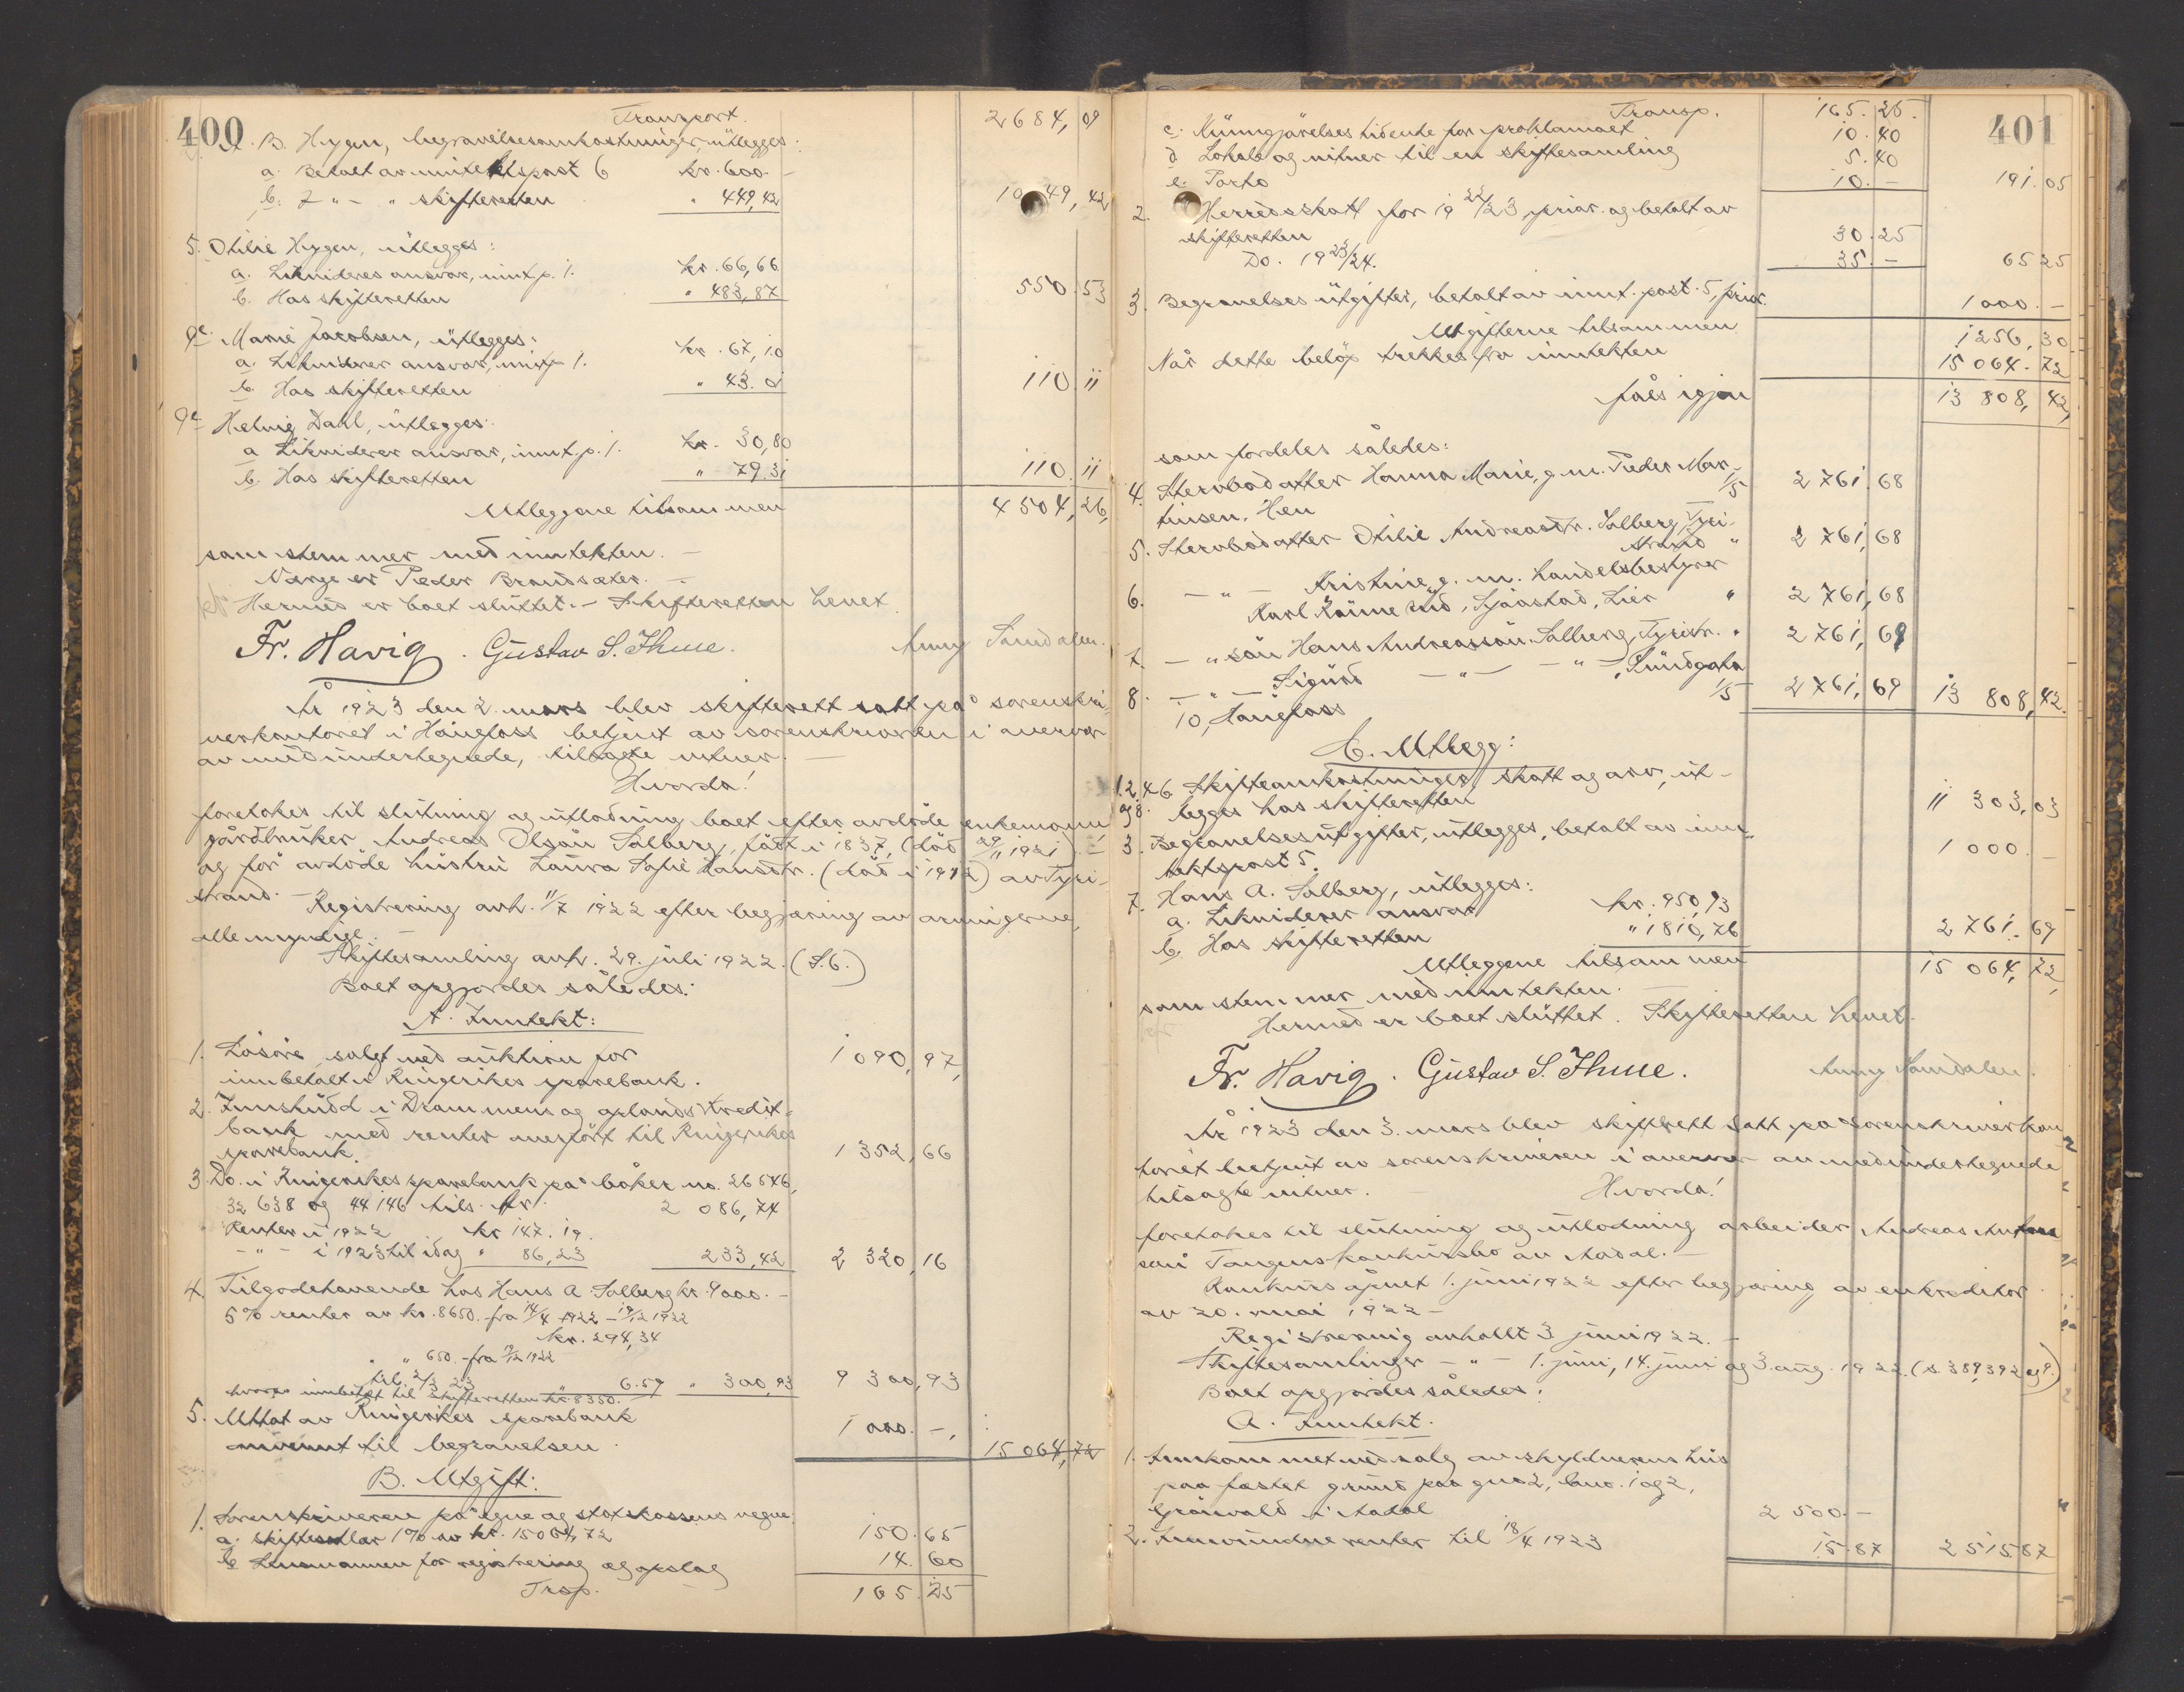 400
Transport. 2684,09
B. Hygen, begravelsesomkostninger, utlegges:
a. Betalt av inntektspost 6 kr. 600.-
b. " - " skifteretten " 449,42 1049,42
5. Otilie Hygen, utlegges:
a. Likvideres ansvar, innt.p. 1. kr. 66,66
b. Hos skifteretten " 483,87 550.53
9c. Marie Jacobsen, utlegges:
a. Likviderer ansvar, innt.p 1. kr. 67,10
b. Hos skifteretten " 43.01 110.11
9d Helvig Dahl, utlegges:
a Likviderer ansvar, innt.p. 1. kr. 30,80
b. Hos skifteretten " 79.31 110.11
Utleggene tilsammen 4504,26,
som stemmer med inntekten. -
Verge er Peder Brandsæter. -
Hermed er boet sluttet. - Skifteretten hevet.
Fr. Havig. Gustav S. Thue. Anny Sandalen.
År 1923 den 2. mars blev skifterett satt på sorenskri-
verkontoret i Hönefoss betjent av sorenskriveren i nærvær
av medundertegnede, tilsagte vitner. -
Hvorda!
foretokes til slutning og utlodning boet efter avdöde enkemann
gårdbruker Andreas Olsön Solberg, födt i 1837, (död 29/11 1921) -
og för avdöde hustru Laura Sofie Hansdtr. (död i 1912) av Tyri-
strand. - Registrering avh. 11/7 1922 efter begjæring av arvingerne,
alle myndige. -
Skiftesamling avh. 29. juli 1922. (S.6.)
Boet opgjordes således:
A. Inntekt:
1. Lösöre, solgt ved auktion for
innbetalt i Ringerikes sparebank. 1090,97,
2. Innskudd i Drammens og oplands kredit-
bank med renter overfört til Ringerikes
sparebank. 1352,66
3. Do. i Ringerikes sparebank på böker no. 26546,
32638 og 44146 tils. kr. 2086,74
Renter i 1922 kr 147.19.
- " - i 1923 til idag " 86,23 233,42 2320,16
4. Tilgodehavende hos Hans A. Solberg kr. 9000.-
5% renter av kr. 8650. fra 14/4 1922 - 19/12 1922
kr. 294,34
" " 650.- fra 19/12 1922
til 2/3 23 " 6.59 " 300,93 9300,93
hvorav innbetalt til skifteretten kr. 8350.
5. Uttat av Ringerikes sparebank
anvennt til begravelsen. 1000.-, 15064,72
B. Utgift:
1. Sorenskriveren på egne og statskassens vegne
a. skiftesalær 1% av kr. 15064,72 150.65
b Lensmannen for registrering og opslag 14.60
Trsp. 165.25
401
Transp. 165.25.
c. Kunngjörelsestidende for proklamaet 10.40
d Lokale og vitner til en skiftesamling 5.40
e. Porto 10.- 191.05
2. Herredsskatt for 19 22/23, prior. og betalt av
skifteretten 30.25
Do. 19 23/24. 35.- 65 25
3. Begravelses utgifter, betalt av innt. post. 5, prior. 1000.-
Utgifterne tilsammen 1256,30.
Når dette belöp trekkes fra inntekten 15064.72
fåes igjen 13808,42,
som fordeles således:
4. Stervbodatter Hanna Marie, g.m. Peder Mar-
tinsen. Hen 1/5 2761.68
5. Stervbodatter Otilie Andreasdtr. Solberg, Tyri-
strand " 2761,68
6. - " - Kristine, g. m. handelsbestyrer
Karl Rönne rud, Sjåstad, Lier " 2761,68
7. - " sön Hans Andreassön Solberg, Tyristr. " 2761,69
8. - " - Sigurd - " - - " -, Sundgata
10, Hönefoss 1/5 2761,69 13808,42.
C. Utlegg:
1.2.4.6 Skifteomkostninger, skatt og arv, ut-
og 8. legges hos skifteretten 11303,03
3. Begravelsesutgifter, utlegges, betalt av inn-
tektspost 5. 1000.-
7. Hans A. Solberg, utlegges:
a. Likviderer ansvar kr. 950,93
b. Hos skifteretten " 1810,76 2761.69
Utleggene tilsammen 15064,72,
som stemmer med inntekten. -
Hermed er boet sluttet. Skifteretten hevet.
Fr. Havig. Gustav S. Thue. Anny Sandalen.
År 1923 den 3. mars blev skifterett satt på sorenskriverkon
toret betjent av sorenskriveren i nærvær av medundertegnede
tilsagte vitner. - Hvorda!
foretokes til slutning og utlodning arbeider Andreas
sön Tangens konkursbo av Aadal. -
Konkurs åpnet 1. juni 1922 efter begjæring av en kreditor
av 20. mai 1922 -
Registrering avholdt 3 juni 1922. -
Skiftesamlinger - " - 1. juni, 14. juni og 3. aug. 1922. (s. 389, 392 og 9.)
Boet opgjordes således:
A. Inntekt.
1. Innkommet ved salg av skyldnerens hus
paa festet grund paa gno 2, bno. 1 og 2,
Grönvold i Aadal 2500.-
2. Innvundne renter til 18/4 1923 15.87 2515 87